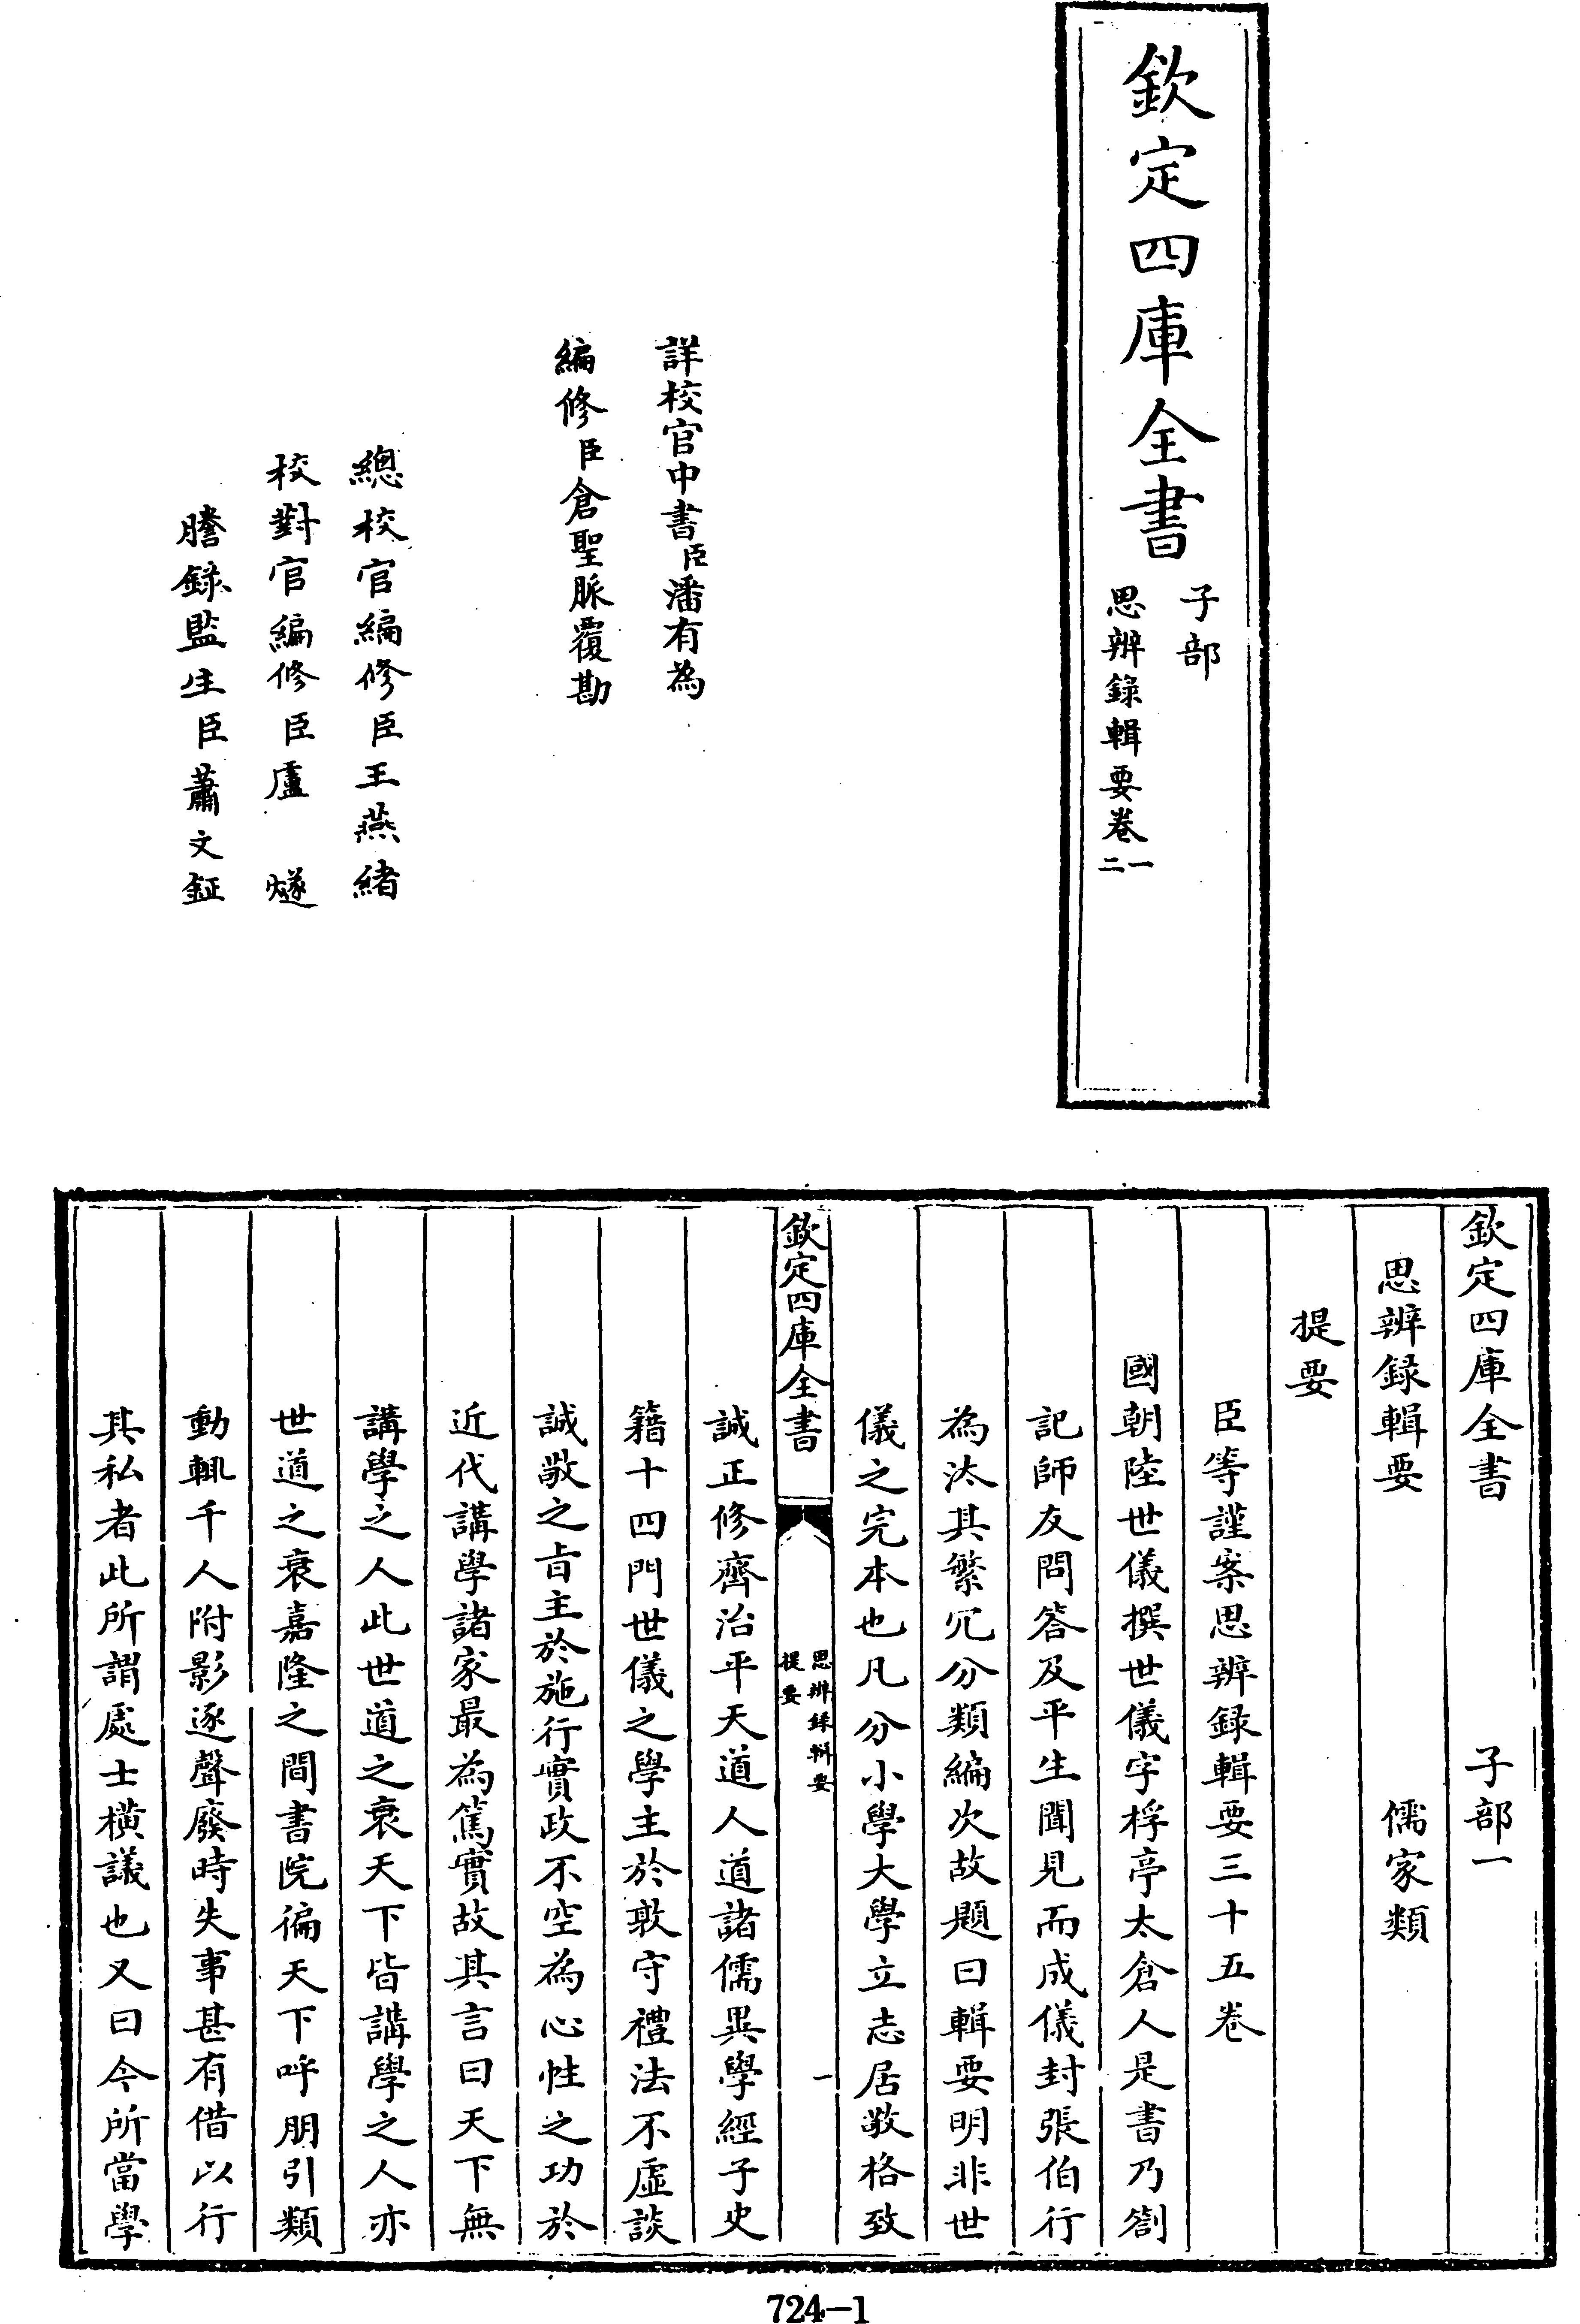 欽定四庫全書
子部
思辨錄輯要卷一二
詳校官中書臣潘有為
編修臣倉聖脈覆勘
總校官編修臣王燕緒
校對官編修臣盧 燧
謄錄監生臣蕭文鉦
欽定四庫全書 子部一
思辨録輯要 儒家類
提要
臣等謹案思辨録輯要三十五卷
國朝陸世儀撰世儀字桴亭太倉人是書乃劄
記師友問答及平生聞見而成儀封張伯行
為汰其繁冗分類編次故題曰輯要明非世
儀之完本也凡分小學大學立志居敬格致
欽定四庫全書
思辨録輯要
提要
一
誠正修齊治平天道人道諸儒異學經子史
籍十四門世儀之學主於敦守禮法不虛談
誠敬之旨主於施行實政不空為心性之功於
近代講學諸家最為篤實故其言曰天下無
講學之人此世道之衰天下皆講學之人亦
世道之衰嘉隆之間書院徧天下呼朋引類
動輒千人附影逐聲廢時失事甚有借以行
其私者此所謂處士橫議也又曰今所當學
724-1